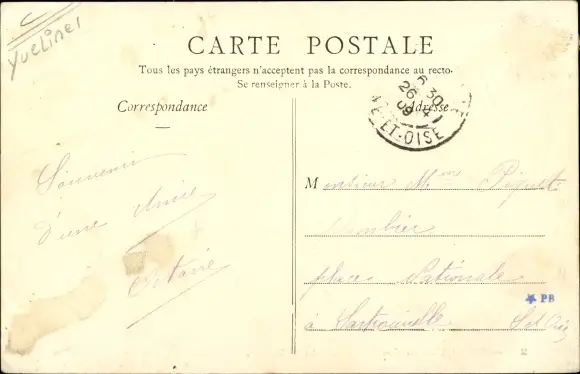 Yvelines
CARTE POSTALE
Tous les pays étrangers n'acceptent pas la correspondance au recto.
Se renseigner à la Poste.
Correspondance
Adresse
6 30
26 -4
09
ET-OISE
Souvenir
d'une Amie
Octavie
Monsieur Mme
place Nationale
à Sartrouville S et Oise
PB